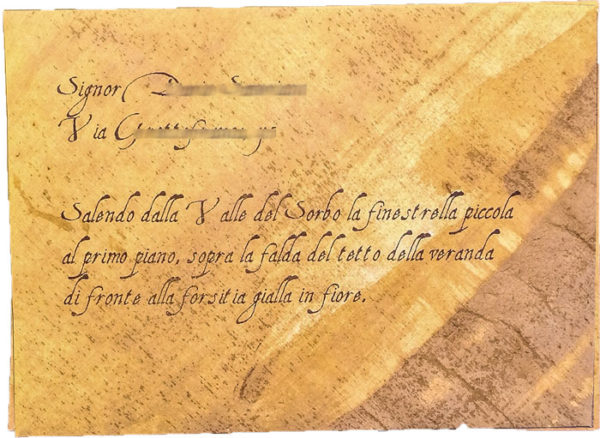 Signor
Via
Salendo dalla Valle del Sorbo la finestrella piccola
al primo piano, sopra la falda del tetto della veranda
di fronte alla forsitia gialla in fiore.